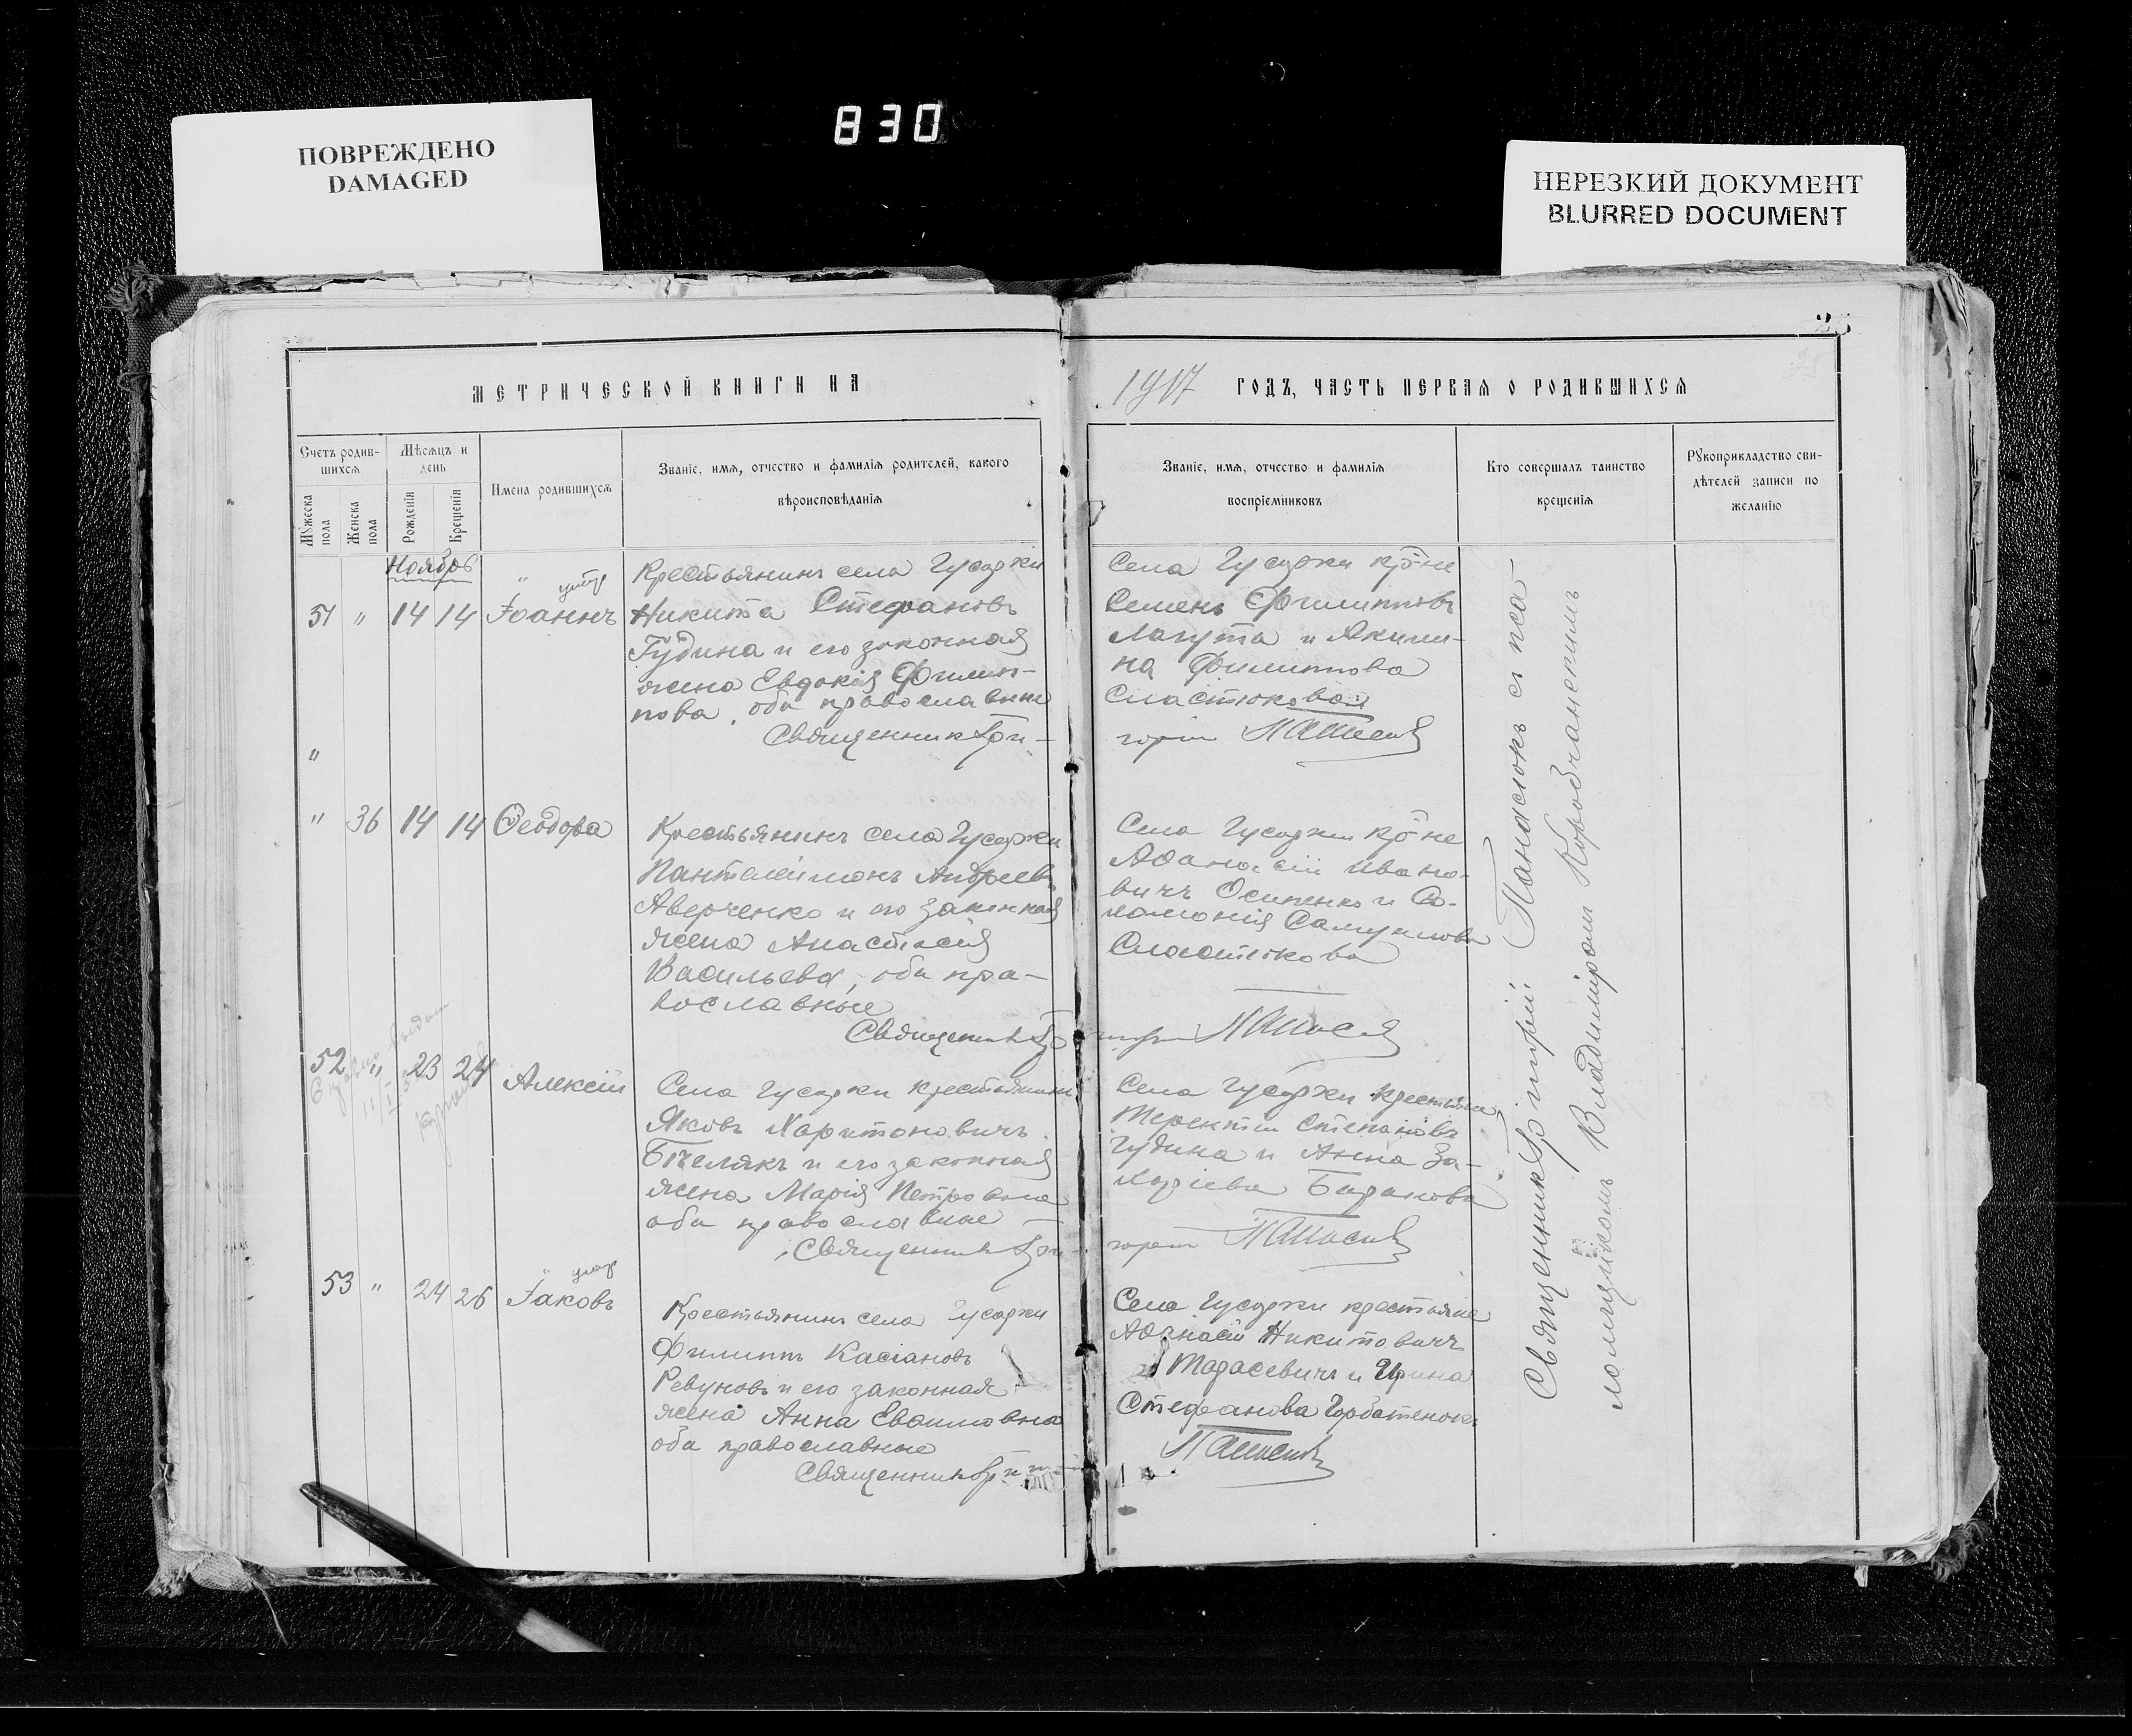 830
ПОВРЕЖДЕНО
DAMAGED
НЕРЕЗКИЙ ДОКУМЕНТ
BLURRED DOCUMENT
МЕТРИЧЕСКОЙ КНИГИ НА
Счетъ родив-
шихся
Мѣсяцъ и
день
Мужеска
пола
Женска
пола
Рожденія
Крещенія
Имена родившихся
Званіе, имя, отчество и фамилія родителей, какого
вѣроисповѣданія
Ноябрь
умер
51 " 14 14 Іоаннъ
Крестьянинъ села Гусарки
Никита Стефановъ
Гудина и его законная
жена Евдокія Филип-
пова, оба православные
Священникъ Гри-
"
" 36 14 14 Ѳеодора
Крестьянинъ села Гусарки
Пантелеимонъ Андреевъ
Аверченко и его законная
жена Анастасія
Васильева, оба пра-
вославные
Священникъ Гри
52 " 23 24 Алексій
Села Гусарки крестьянинъ
Яковъ Харитоновичъ
Бѣлякъ и его законная
жена Марія Петровна
оба православные
Священникъ Гри-
умер
53 " 24 26 Іаковъ
Крестьянинъ села Гусарки
Филиппъ Касіановъ
Ревуновъ и его законная
жена Анна
оба православные
Священникъ
1917 ГОДЪ, ЧАСТЬ ПЕРВАЯ О РОДИВШИХСЯ
Званіе, имя, отчество и фамилія
воспріемниковъ
Кто совершалъ таинство
крещенія
Рукоприкладство сви-
дѣтелей записи по
желанію
Села Гусарки кр-не
Семенъ Филипповъ
Лагута и Акили-
на Филиппова
Сластюкова
горій
Села Гусарки кр-не
Аѳанасій Ивано-
вичъ Осипенко и Со-
ломонія Самуилова
Сластюкова
Села Гусарки крестьяне
Терентій Степановъ
Гудина и Анна За-
харіева Баранова
горій
Села Гусарки крестьяне
Аѳанасій Никитовичъ
Тарасевичъ и Ирина
Стефанова Горбатенокъ
Священникъ Григорій Панасюкъ съ пса-
ломщикомъ Владиміромъ